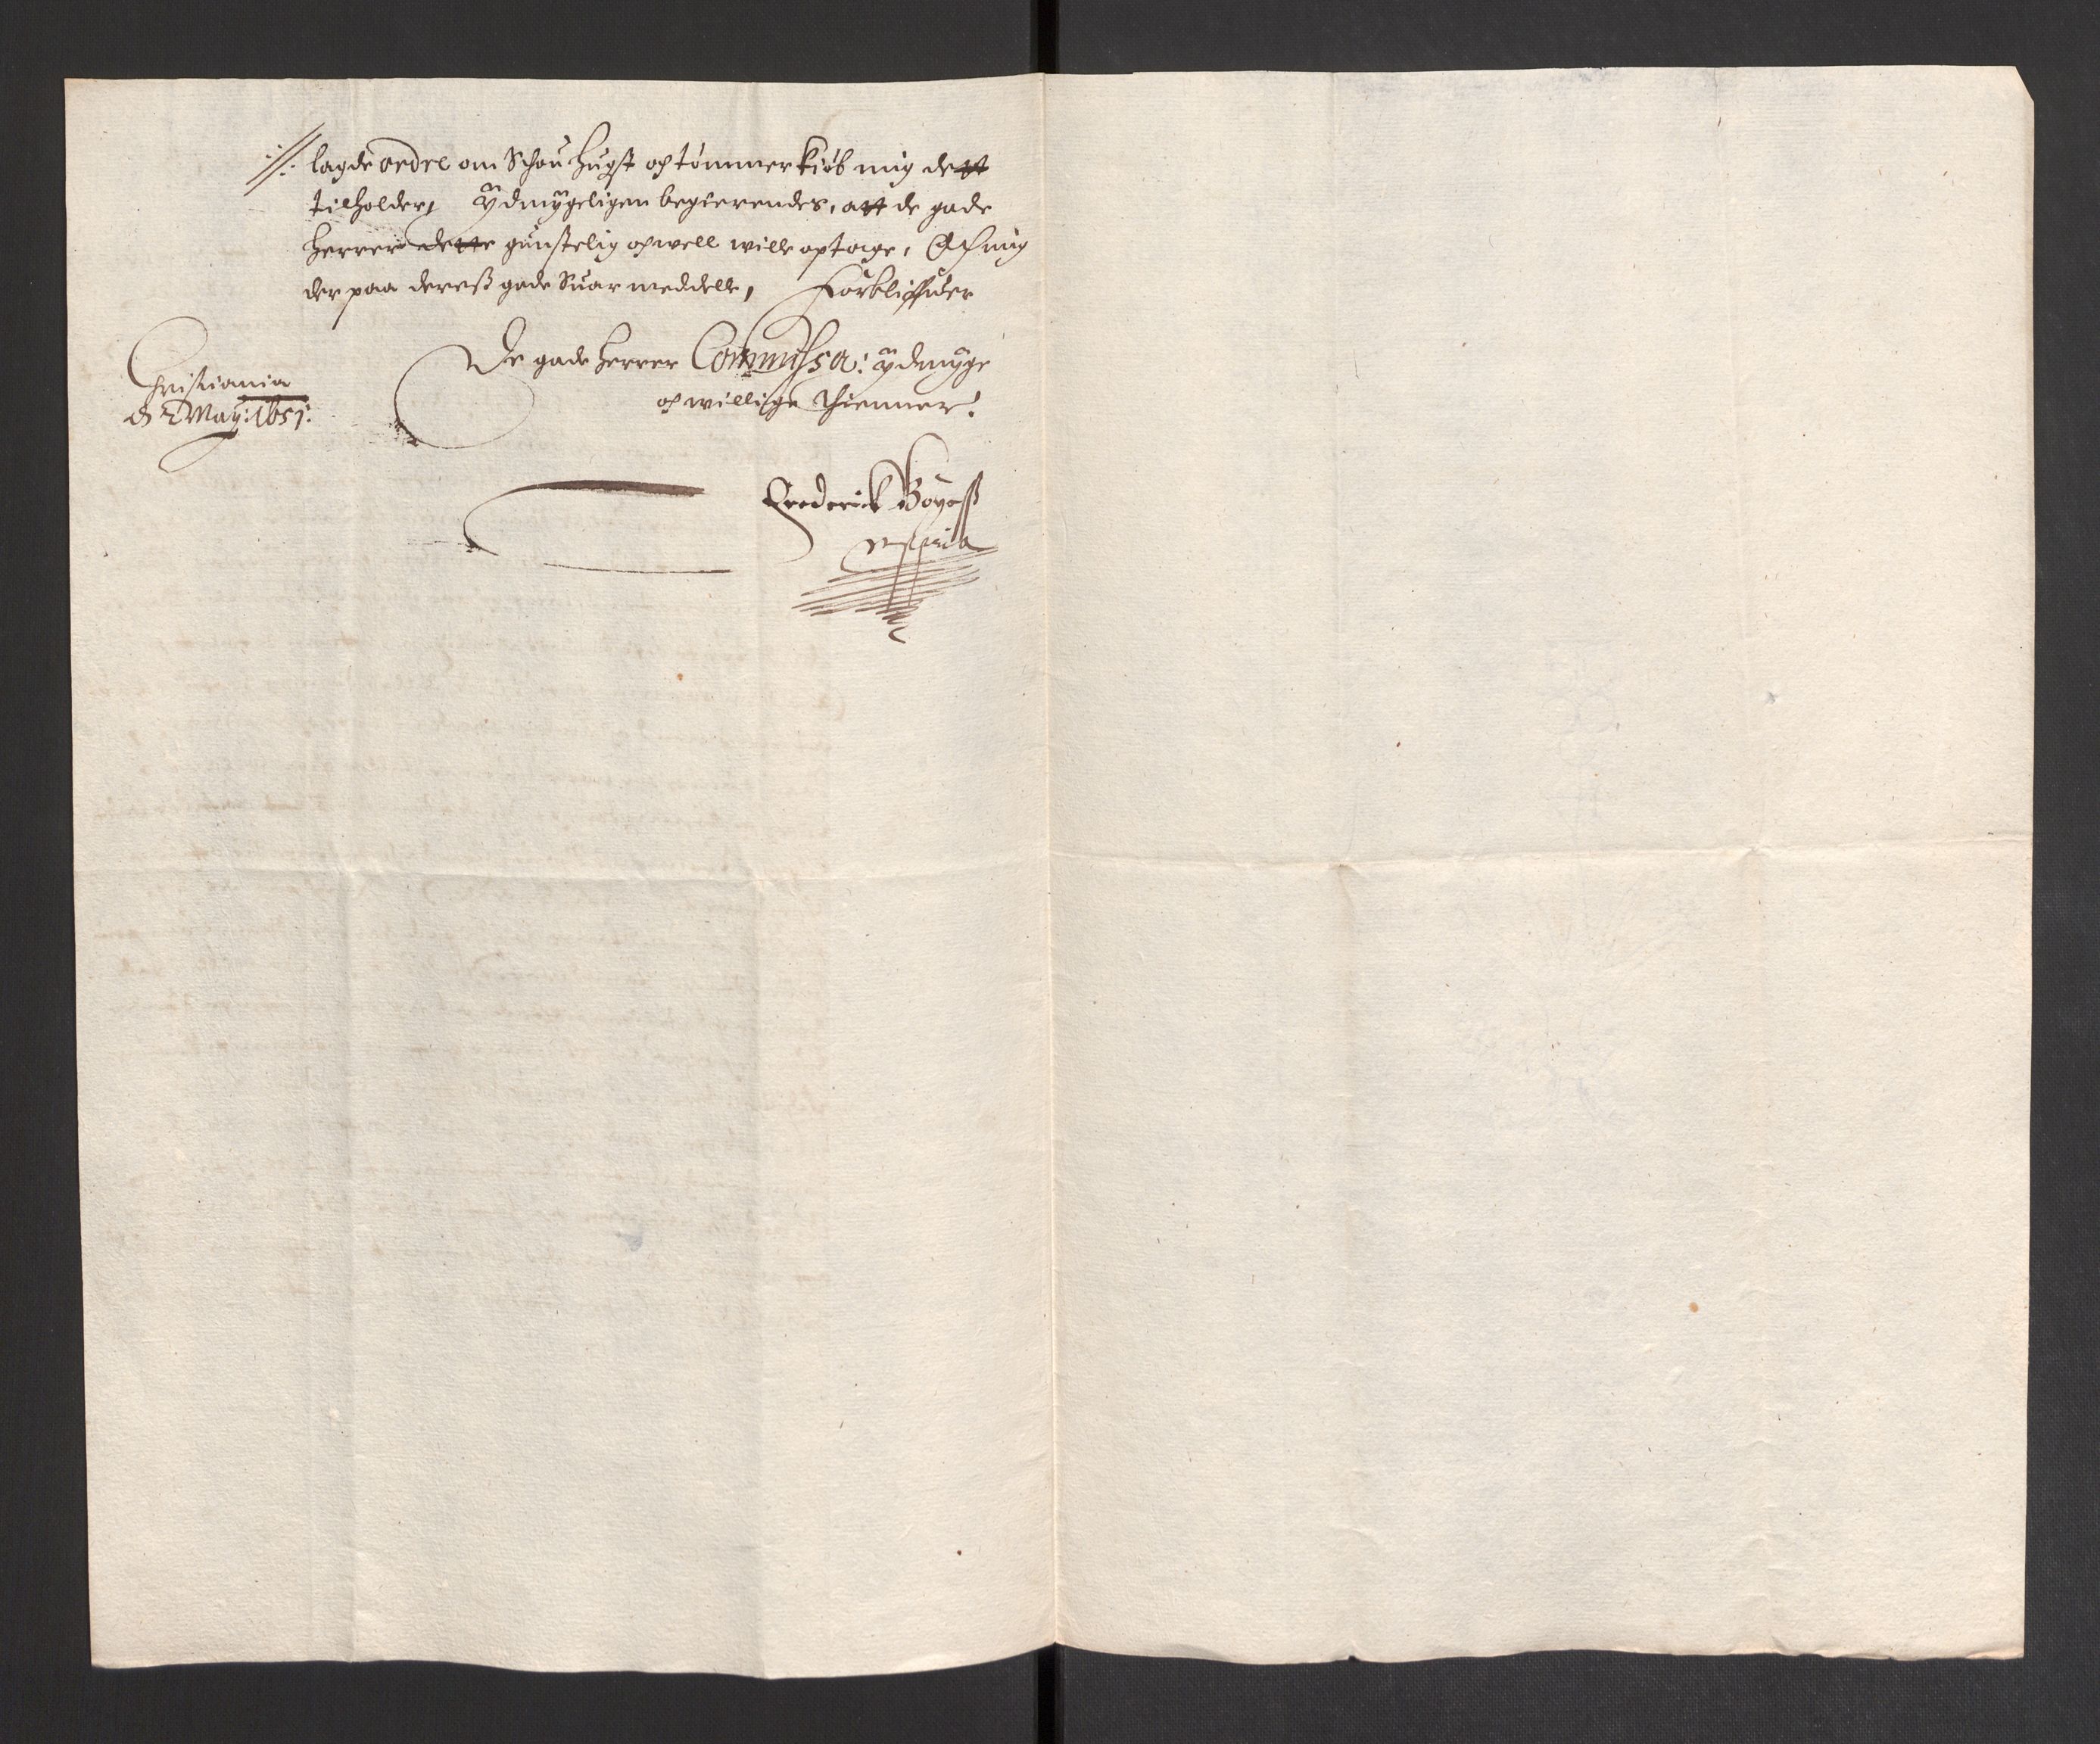 ://: lagde ordre om Schou Hugst och tømmer kiøb mig dett
tilholder, Ÿdmÿgeligen begierendes, att de gode
Herrer dette gunstelig och well wille optage, Och mig
der paa dereß gode Suar meddelle, Forbliffuer
De gode Herrer Commissa: ÿdmÿge
och willige Thienner.
Christiania
d 2 Maÿ: 1651:
Frederich Boyeß